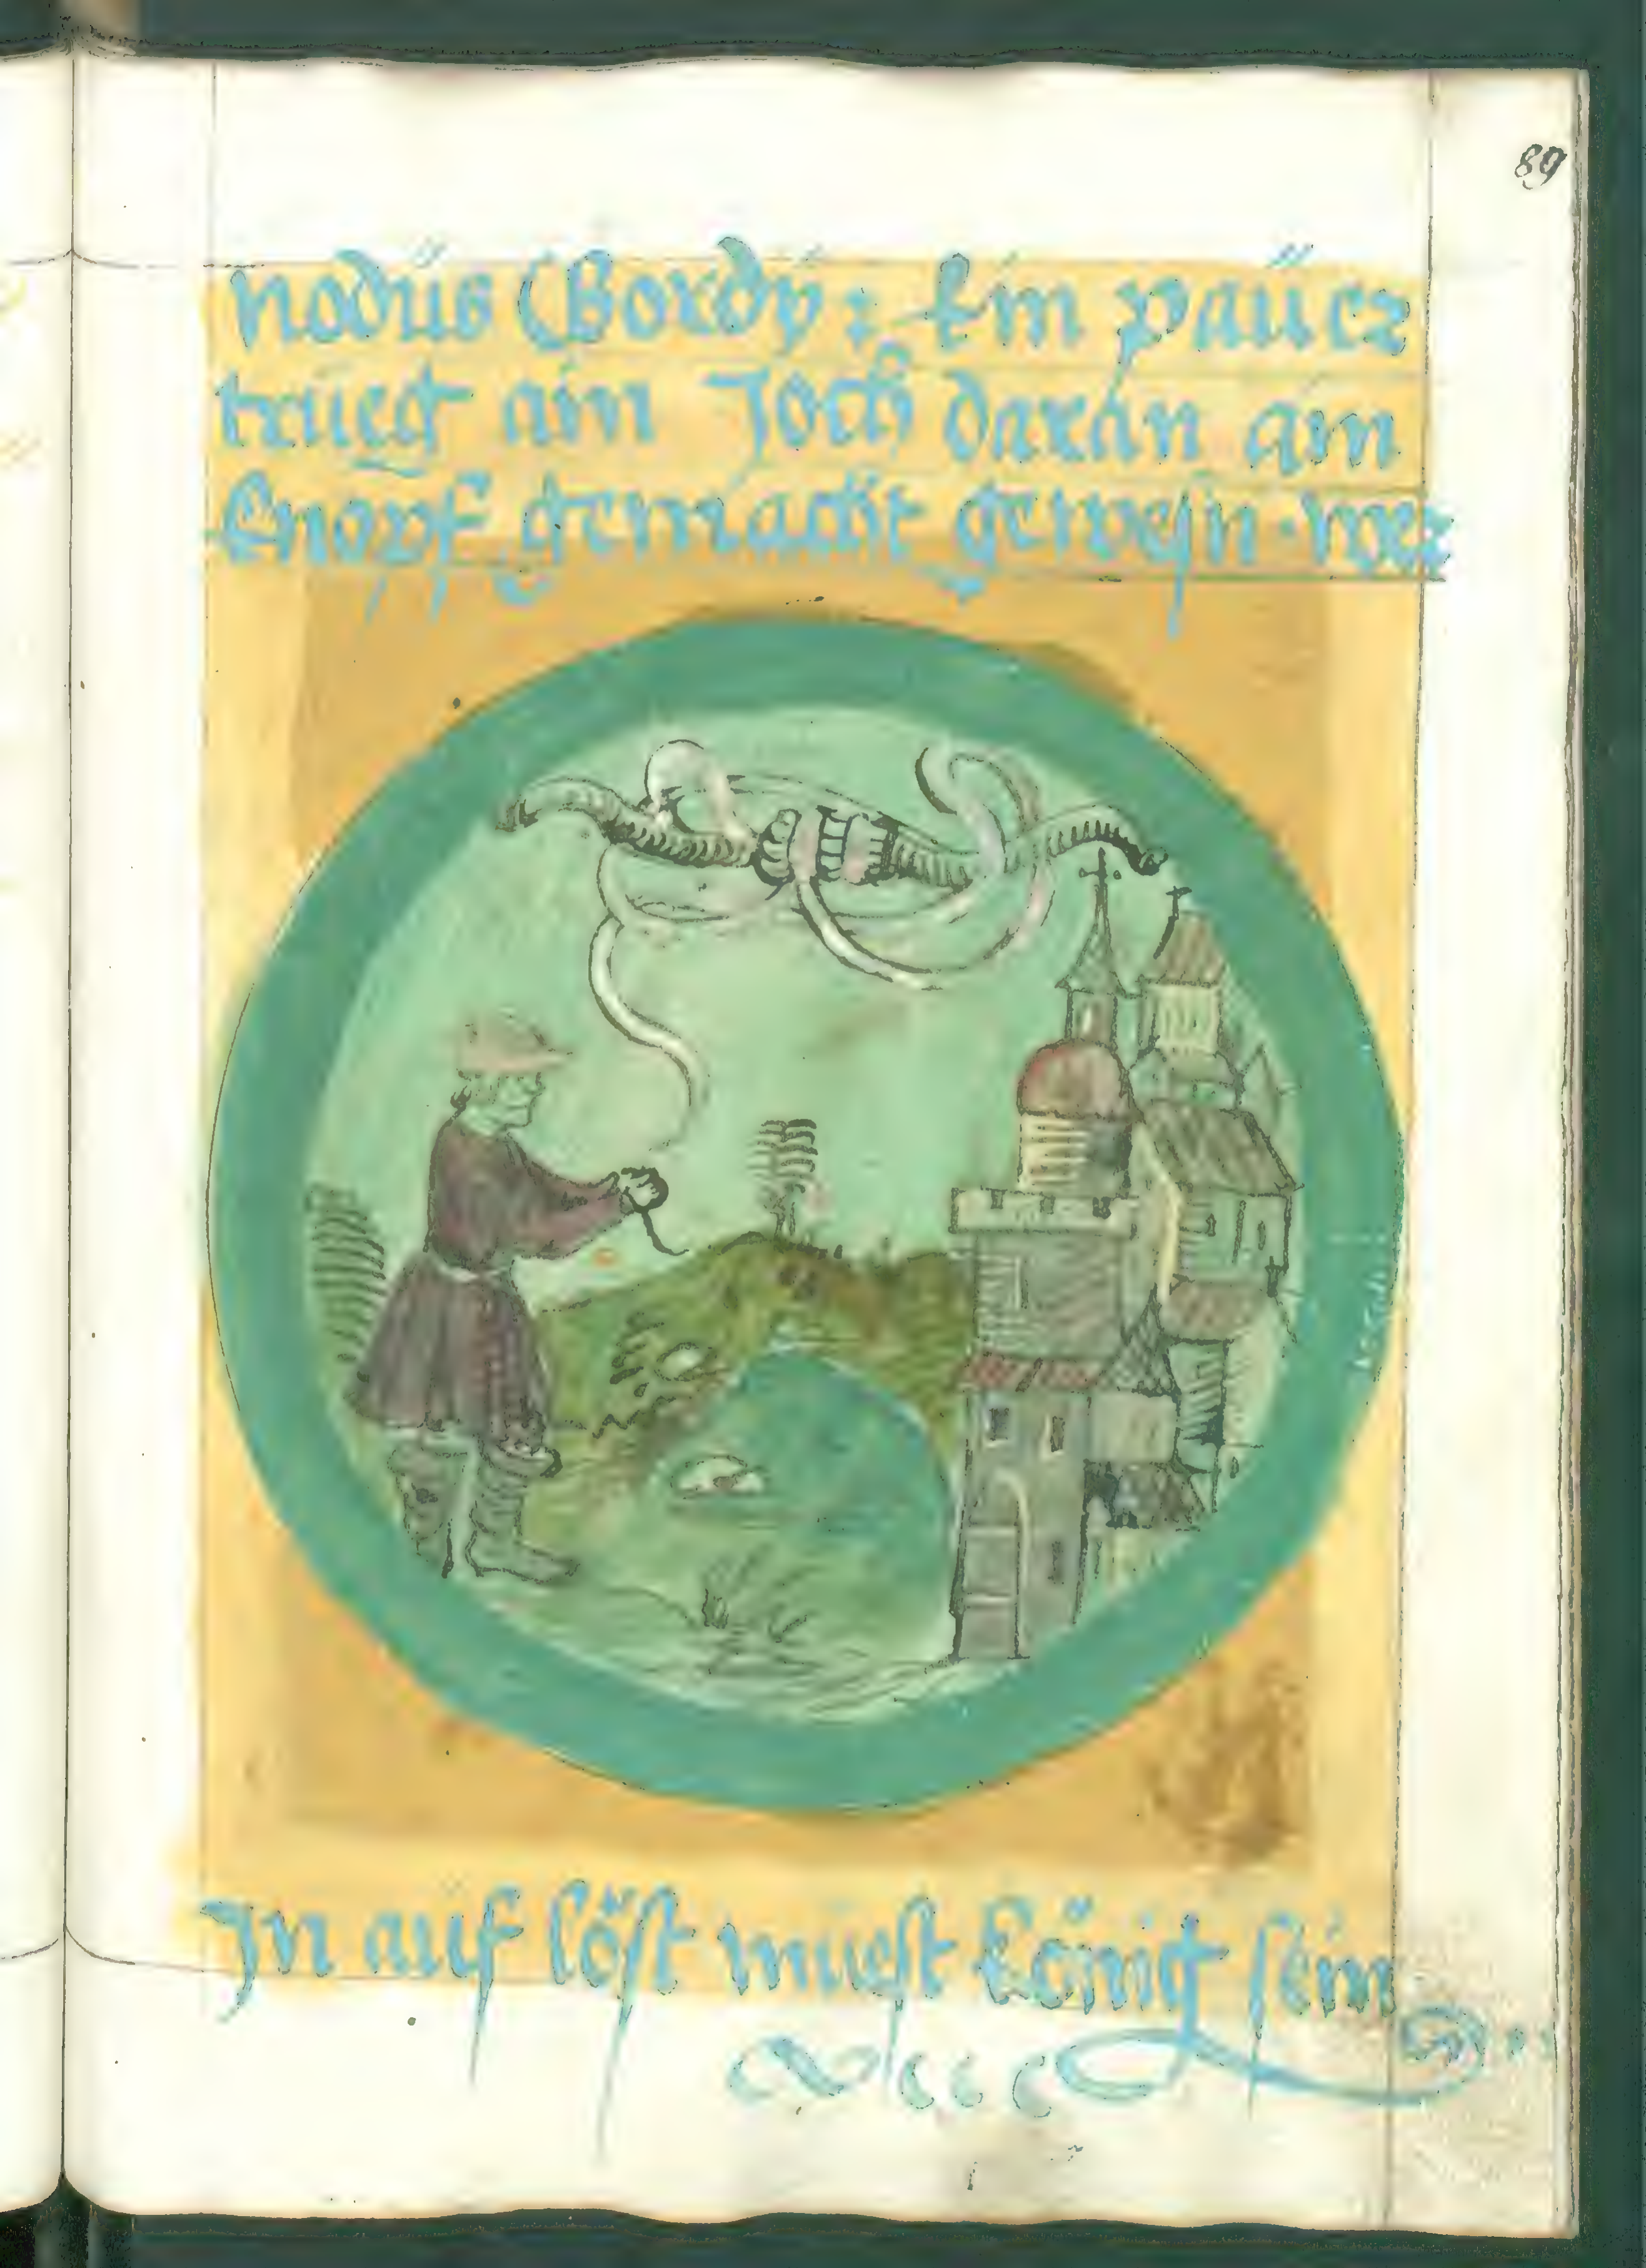 89
Nodus Gordy: Ein paur
trueg ain Joch daran ain
knopf gemacht gewesn. wer
In auf löst muest König sein